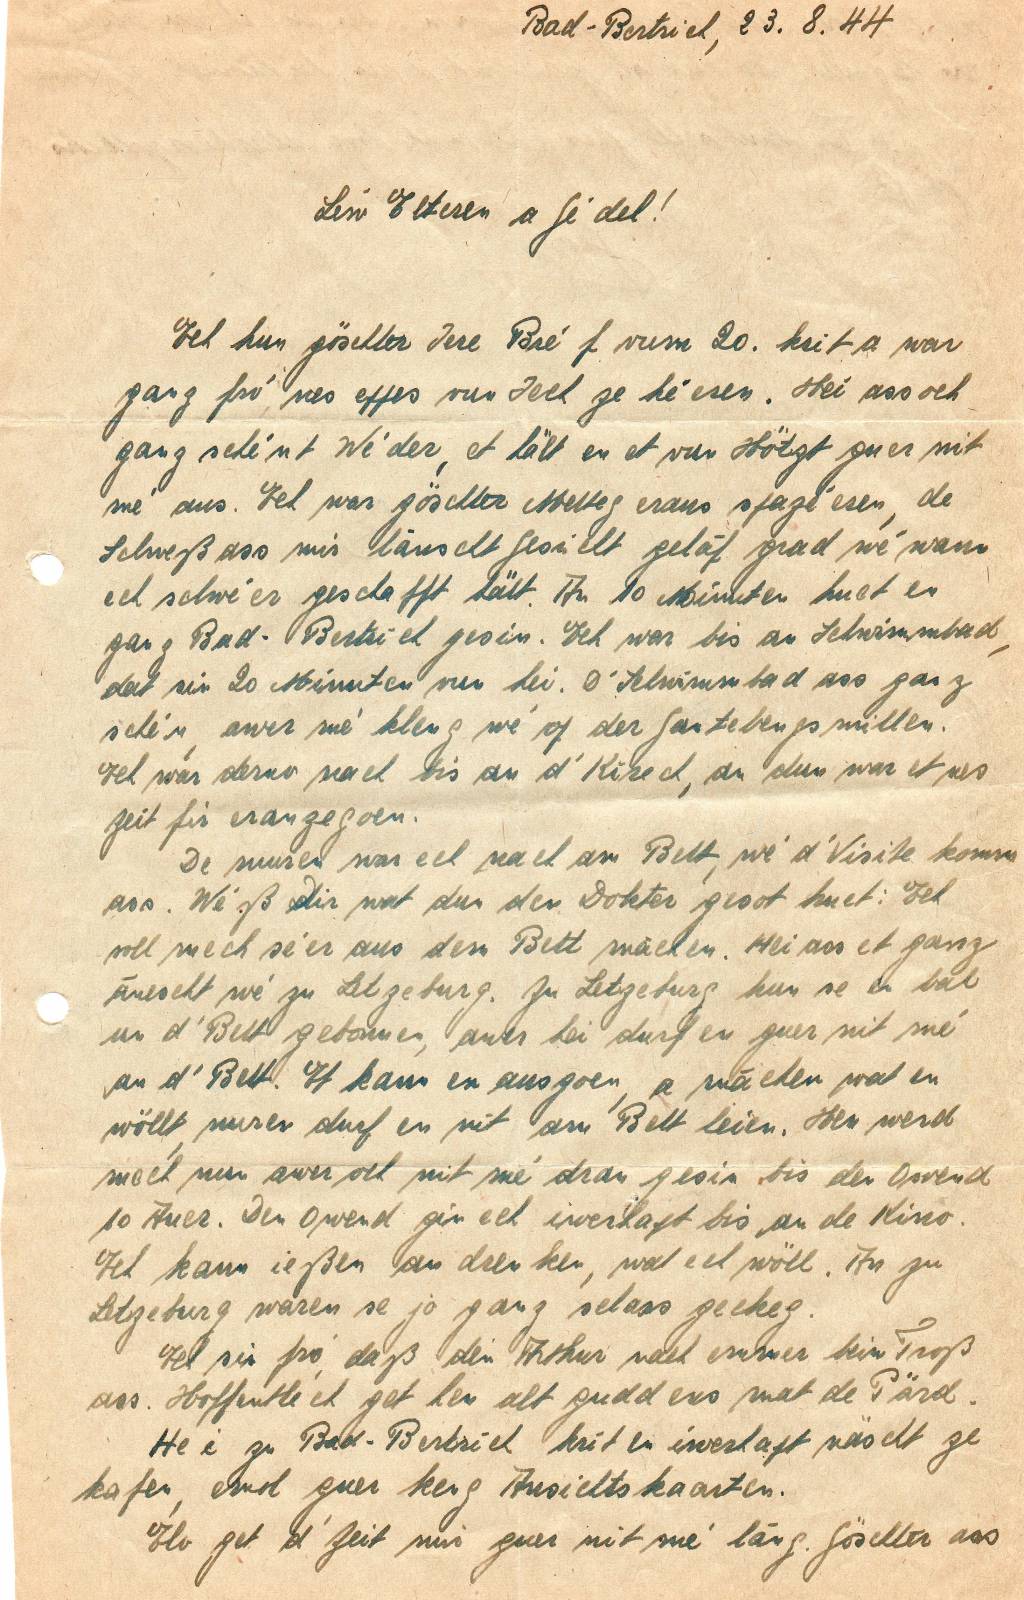 Bad-Bertrich, 23. 8. 44
Léiw Elteren a Gédel!
Ech hun göschter Iere Bréf vum 20. krit a war
ganz fró, nes eppes vun Iech ze héieren. Hei ass och
ganz schéint Wéder, et hält en et vun Hötzt guer nit
mé aus. Ech war göschter Metteg eraus spazéieren, de
Schweß ass mir länscht Gesicht gelaf grad wé wann
ech schwéier geschafft hält. An 10 Minuten huet en
ganz Bad-Bertrich gesin. Ech war bis an Schwimmbad,
dat sin 20 Minuten vun hei. D'Schwimmbad ass ganz
schéin, awer mé kleng wé op der Gantebengsmillen.
Ech war derno nach bis an d'Kirech, an dun war et nes
Zeit fir eranzegoen.
De muren war ech nach am Bett, wé d'Visite komm
ass. Wéß Dir wat dun den Dokter gesot huet: Ech
soll mech séier aus dem Bett mächen. Hei ass et ganz
änescht wé zu Letzeburg. Zu Letzeburg hun se en bal
un d'Bett gebonnen, awer hei durf en guer nit mé
an d'Bett. Et kann en ausgoen, a mächen wat en
wöllt, nuren durf en nit am Bett leien. Hen werd
mech nun awer och nit mé dran gesin bis den Owend
10 Auer. Den Owend gin ech iwerhapt bis an de Kino.
Ech kann ießen an drenken, wat ech wöll. An zu
Letzeburg waren se jo ganz schass geckeg.
Ech sin fró, daß den Arthur nach emmer beim Troß
ass. Hoffentlech get hen alt guddens mat de Pärd.
Hei zu Bad-Bertrich krit en iwerhapt näscht ze
kafen, emol guer keng Ansichtskaarten.
Elo get d'Zeit mir guer nit mé läng. Göschter ass